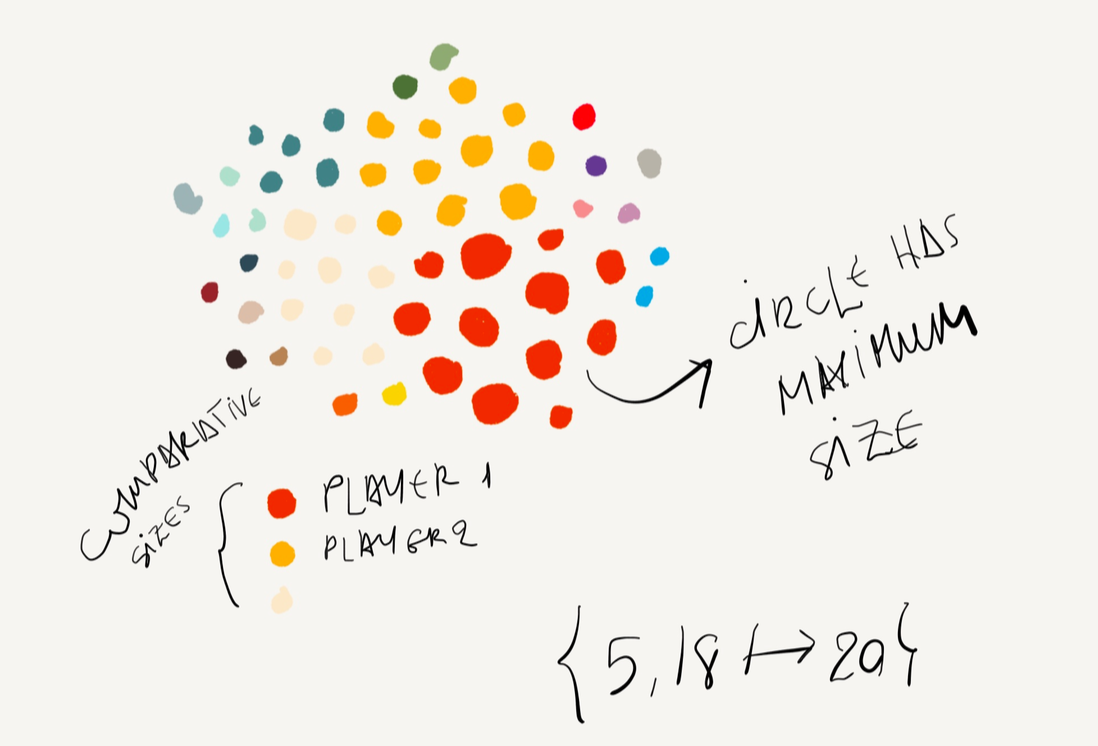 CIRCLE HAS
MAXIMUM
SIZE
COMPARATIVE
SIZES
PLAYER 1
PLAYER 2
{ 5, 18 ↦ 20 }